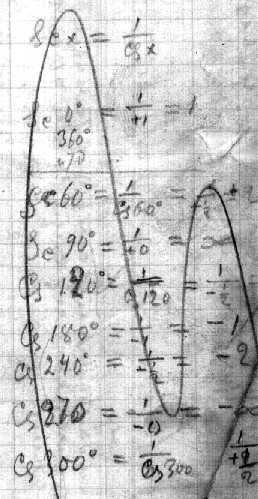 Sc x = 1/cs x
Sc 0° = 1/+1 = 1
360°
Sc 60° = 1/cs60° = 1/½ +2
Sc 90° = 1/+0 = ∞
Cs 120° = 1/120 = 1/-½
Cs 180° = 1/-1 = -1
Cs 240° = 1/-½ = -2
Cs 270 = 1/-0 = -∞
Cs 300° = 1/Cs300 1/+½